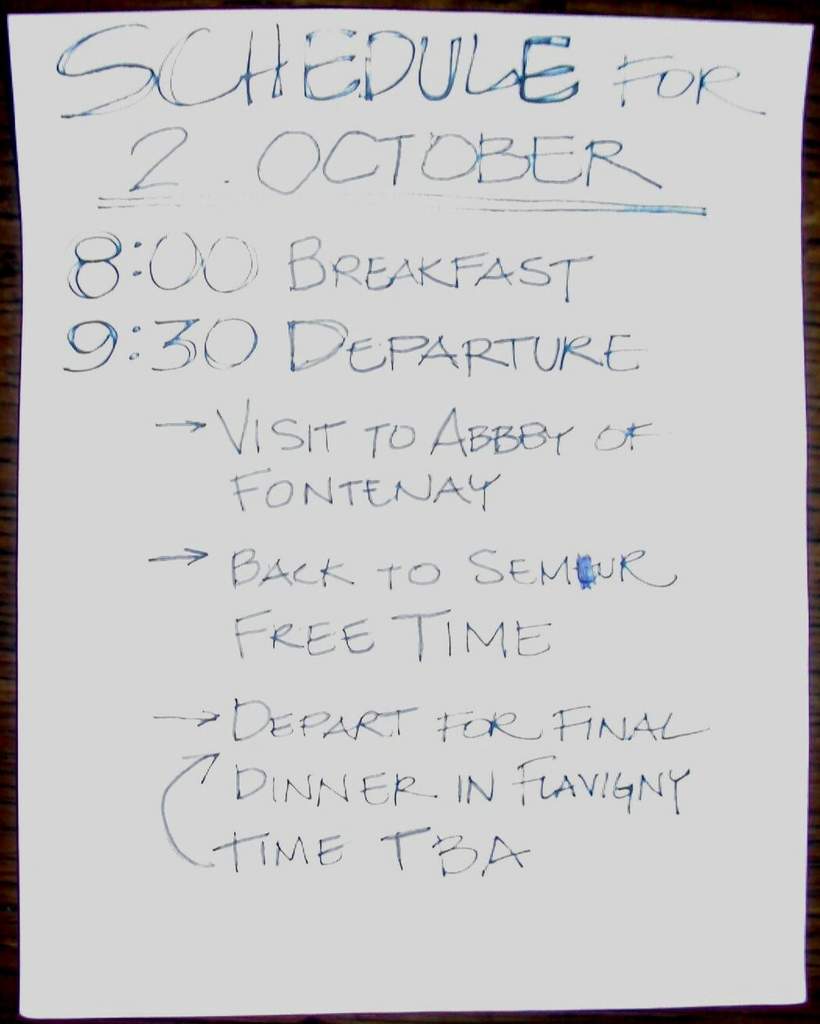 SCHEDULE FOR
2. OCTOBER
8:00 BREAKFAST
9:30 DEPARTURE
→ VISIT TO ABBEY OF
FONTENAY
→ BACK TO SEMUR
FREE TIME
→ DEPART FOR FINAL
DINNER IN FLAVIGNY
TIME TBA